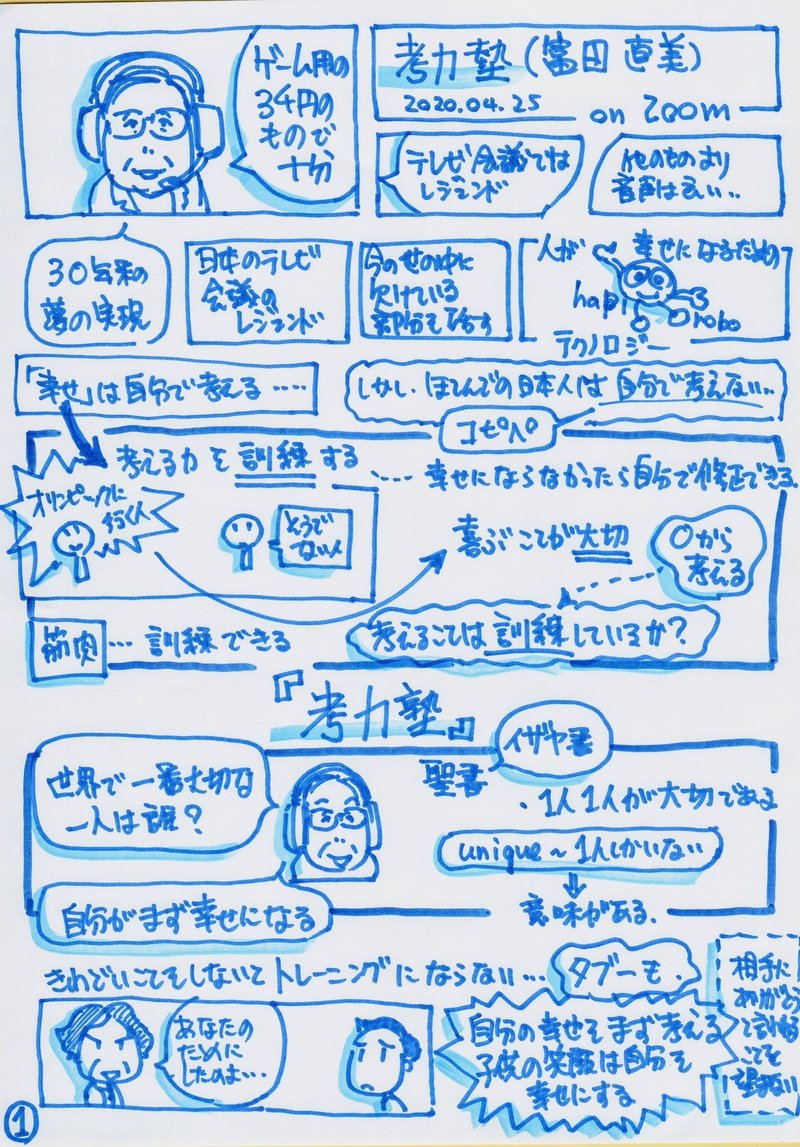 ゲーム用の
3千円の
もので
十分
考力塾(富田 直美)
2020.04.25 on Zoom
テレビ会議では
レジェンド
他のものより
音声は良い..
30年来の
夢の実現
日本のテレビ
会議の
レジェンド
今の世の中に
欠けている
部分を話す
人が 幸せになるための
hapi
robo
テクノロジー
「幸せ」は自分で考える.....
しかし、ほとんどの日本人は 自分で考えない...
コピペ
考える力を訓練する
...幸せにならなかったら自分で修正できる.
オリンピックに
行く人
そうで
ない人
喜ぶことが大切
0から
考える
筋肉... 訓練できる
考えることは訓練しているか?
『考力塾』
世界で一番大切な
一人は誰?
聖書
イザヤ書
・1人1人が大切である
unique~1人しかいない
⇓
意味がある.
自分がまず幸せになる
きれいでいことをしないで トレーニングにならない...
タブーも.
あなたの
ために
したのよ...
自分の幸せをまず考える
子供の笑顔は自分を
幸せにする
相手に
ありがとう
ことを
望まない
1